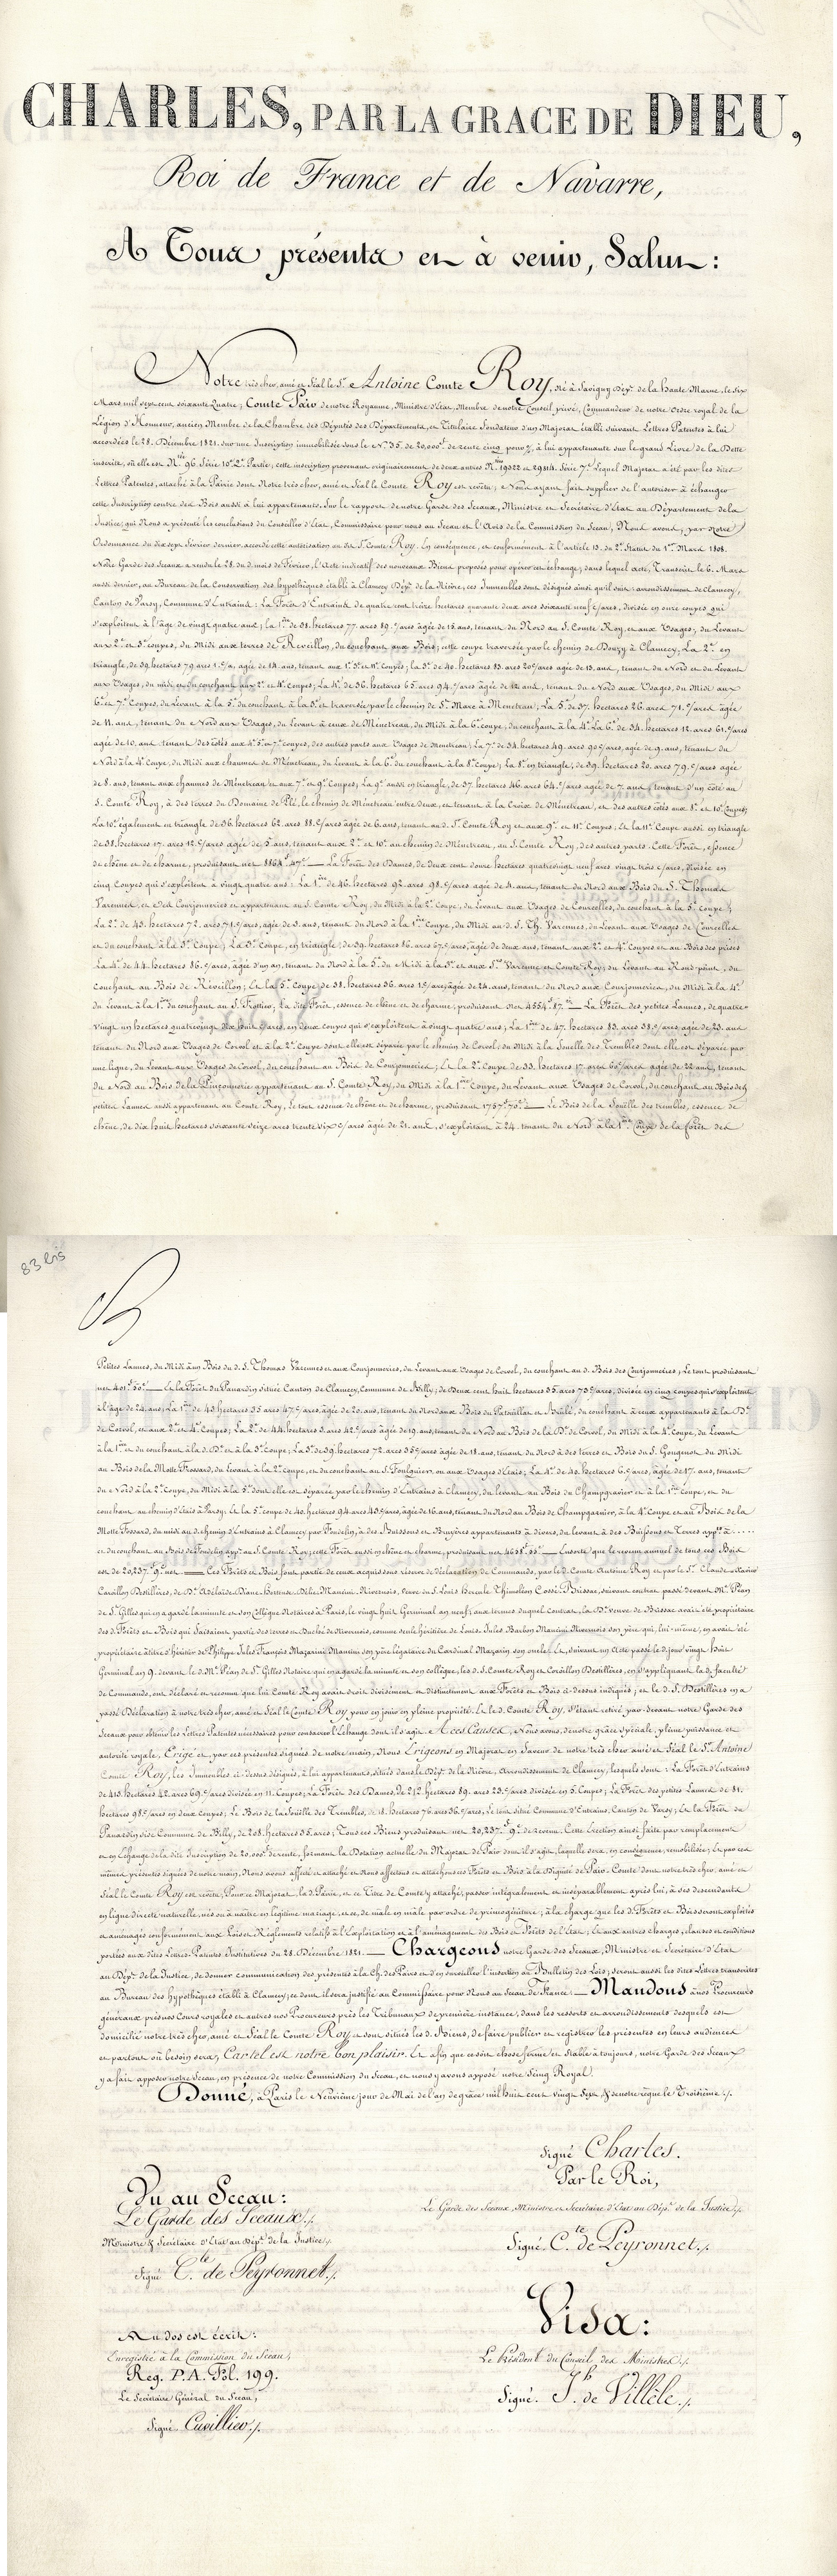 CHARLES, PAR LA GRACE DE DIEU,
Roi de France et de Navarre,
A Tous présents et à venir, Salut :
Notre très cher, amé et féal le S.r Antoine Comte Roy, né à Savigny Dép.t de la haute Marne, le six
Mars mil sept cent soixante Quatre ; Comte Pair de notre Royaume, Ministre d'Etat, Membre de notre Conseil privé, Commandeur de notre Ordre royal de la
Légion d'Honneur, ancien Membre de la Chambre des Députés des Départements, et Titulaire Fondateur d'un Majorat établi suivant Lettres Patentes à lui
accordées le 28. Décembre 1821. sur une Inscription immobilisée sous le N.o 35. de 20,000.f de rente cinq pour %, à lui appartenante sur le grand Livre de la Dette
inscrite, où elle est N.o 96. Série 10.e 2.e Partie ; cette inscription provenant originairement de deux autres N.os 19522 et 29514. Série 7.e Lequel Majorat a été par les dites
Lettres Patentes, attaché à la Pairie dont Notre très cher, amé et féal le Comte Roy est revêtu ; Nous ayant fait supplier de l'autoriser à échanger
cette Inscription contre des Bois aussi à lui appartenants. Sur le rapport de notre Garde des Sceaux, Ministre et Secrétaire d'Etat au Département de la
Justice, qui Nous a présenté les conclusions du Conseiller d'Etat, Commissaire pour nous au Sceau et l'Avis de la Commission du Sceau, Nous avons, par notre
Ordonnance du dix sept Février dernier, accordé cette autorisation au dit S. Comte Roy. En conséquence, et conformément à l'article 13. du 2.e Statut du 1.er Mars 1808.
Notre Garde des Sceaux a rendu le 28. du d. mois de Février, l'Acte indicatif des nouveaux Biens proposés pour opérer cet échange, dans lequel acte, Transcrit le 6. Mars
aussi dernier, au Bureau de la Conservation des hypothèques établi à Clamecy Dép.t de la Nièvre, ces Immeubles sont désignés ainsi qu'il suit : arrondissement de Clamecy,
Canton de Varsy, Commune d'Entrains : La Forêt d'Entrains de quatre cent treize hectares quarante deux ares soixante neuf c/ares, divisée en onze coupes qui
s'exploitent à l'âge de vingt quatre ans ; la 1.re de 38. hectares 77. ares 89. c/ares âgée de 15. ans, tenant du Nord au S. Comte Roy, et aux Usages ; du Levant
aux 2.e et 3.e coupes, du Midi aux terres de Réveillon, du couchant aux Bois ; cette coupe traversée par le chemin de Donzy à Clamecy ; La 2.e en
triangle, de 39. hectares 79. ares 1. c/a, âgée de 14. ans, tenant aux 1.e 3.e et 11.e Coupes ; la 3.e de 40. hectares 83. ares 20 c/ares âgée de 13. ans, tenant du Nord et du Levant
aux Usages, du midi et du couchant aux 2.e et 4.e Coupes ; La 4.e de 36. hectares 65. ares 94. c/ares âgée de 12 ans, tenant du Nord aux Usages, du Midi aux
6.e et 7.e Coupes, du Levant à la 5.e du couchant à la 3.e et traversée par le chemin de S.te Marc à Menetrau ; La 5. de 37. hectares 26. ares 71. c/ares âgée
de 11. ans, tenant du Nord aux Usages, du Levant à ceux de Ménetreau, du Midi à la 6.e coupe, du couchant à la 4.e La 6.e de 34. hectares 12. ares 61. c/ares
âgée de 10. ans, tenant des côtés aux 4.e 5. et 7.e coupes, des autres parts aux Usages de Menetrau ; La 7.e de 34. hectares 49. ares 90 c/ares, âgée de 9. ans, tenant du
Nord à la 4.e Coupe, du Midi aux chaumes de Ménetreau, du Levant à la 6.e du couchant à la 8.e Coupe ; La 8.e en triangle, de 39. hectares 20. ares 79. c/ares âgée
de 8. ans, tenant aux chaumes de Ménetrau et aux 7.e et 9.e Coupes ; La 9.e aussi en triangle, de 37. hectares 46. ares 64. c/ares âgée de 7. ans, tenant d'un côté au
S. Comte Roy, à des terres du Domaine de Plé, le chemin de Ménetreau entre deux, et tenant à la Croix de Ménetreau, et des autres côtés aux 8.e et 10.e Coupes ;
La 10.e également en triangle de 36. hectares 62. ares 88. c/ares âgée de 6. ans, tenant au d. S. Comte Roy et aux 9.e et 11.e Coupes. Et la 11.e Coupe aussi en triangle
de 38. hectares 17. ares 12. c/ares âgée de 5. ans, tenant aux 2.e et 10.e au chemin de Ménetreau, au S. Comte Roy, des autres parts. Cette Forêt, essence
de chêne et de charme, produisant net 8864.f 47.c — La Forêt des Dames, de deux cent douze hectares quatrevingt neuf ares vingt trois c/ares, divisée en
cinq Coupes qui s'exploitent à vingt quatre ans : La 1.re de 46. hectares 92. ares 98. c/ares âgée de 4. ans, tenant du Nord aux Bois du S. Thomas
Varennes, et des Courjonneries et appartenant au S. Comte Roy, du Midi à la 2.e Coupe, du Levant aux Usages de Courcelles, du couchant à la 5.e coupe ;
La 2.e de 43. hectares 72. ares 71. c/ares, âgée de 3. ans, tenant du Nord à la 1.re Coupe, du Midi au d. S. Th. Varennes, du Levant aux Usages de Courcelles
et du couchant à la 3.e Coupe ; La 3.e Coupe, en triangle, de 39. hectares 86. ares 67. c/ares, âgée de deux ans, tenant aux 2.e et 4.e Coupes et au Bois des prises
La 4.e de 44. hectares 86. c/ares, âgée d'un an, tenant du Nord à la 5.e du Midi à la 3.e et aux S.rs Varenne et Comte Roy ; du Levant au Rond-point, du
couchant au Bois de Réveillon ; Et la 5.e Coupe de 38. hectares 36. ares 1. c/are, âgée de 24. ans, tenant du Nord aux Courjonneries, du Midi à la 4.e
du Levant à la 1.re du couchant au S. Frottier, La dite Forêt, essence de chêne et de charme ; produisant net 4554.f 87.c — La Forêt des petites Lannes, de quatre
vingt un hectares quatrevingt dix huit c/ares, en deux coupes qui s'exploitent à vingt quatre ans ; La 1.re de 47. hectares 83. ares 38. c/ares âgée de 23. ans
tenant du Nord aux Usages de Corvol et à la 2.e Coupe dont elle est séparée par le chemin de Corvol ; du Midi à la Souille des Trembles dont elle est séparée par
une ligne, du Levant aux Usages de Corvol, du couchant au Bois de Courjonneries ; Et la 2.e Coupe de 33. hectares 17. ares 60 c/ares âgée de 22 ans, tenant
du Nord au Bois de la Pinçonnerie appartenant au S. Comte Roy, du Midi à la 1.re Coupe, du Levant aux Usages de Corvol, du couchant au Bois des
petites Lannes aussi appartenant au Comte Roy, Le tout essence de chêne et de charme, produisant 1757.f 70.c — Le Bois de la Souille des trembles, essence de
chêne, de dix huit hectares soixante seize ares trente six c/ares âgée de 21. ans, s'exploitant à 24. tenant du Nord à la 1.re Coupe de la forêt des
83 bis
Petites Lannes, du Midi au Bois du d. S. Thomas Varennes et aux Courjonneries, du Levant aux Usages de Corvol, du couchant au d. Bois des Courjonneries ; Le tout produisant
net 401.f 50.c — Et la Forêt du Panardin située Canton de Clamecy, Commune de Billy, de Deux cent huit hectares 35. ares 73 c/ares, divisée en cinq coupes qui s'exploitent
à l'âge de 24. ans ; La 1.re de 43. hectares 35 ares 47. c/ares, âgée de 20. ans, tenant du Nord aux Bois du Patouillat et Brûlé, du couchant à ceux appartenants à la D.e
de Corvol, et aux 2.e et 4.e Coupes ; La 2.e de 44. hectares 8. ares 42. c/ares âgée de 19. ans, tenant du Nord au Bois de la D.e de Corvol, du Midi à la 4.e coupe, du Levant
à la 1.re et du couchant à la d. D.e et à la 3.e Coupe ; La 3.e de 39. hectares 72. ares 35 c/ares âgée de 18. ans, tenant du Nord à des terres et Bois du S. Gougenot du Midi
au Bois de la Motte Frossard, du Levant à la 2.e coupe, et du couchant au S. Foulquier, ou aux Usages d'Etais ; La 4.e de 40. hectares 6. c/ares, âgée de 17. ans, tenant
du Nord à la 2.e Coupe, du Midi à la 5.e dont elle est séparée par le chemin d'Entrains à Clamecy, du levant au Bois du Champgravier et à la 1.re Coupe, et du
couchant au chemin d'Etais à Varsy. Et la 5.e coupe de 40. hectares 94. ares 43 c/ares, âgée de 16. ans, tenant du Nord au Bois de Champgarnier, à la 4.e Coupe et au Bois de la
Motte Fossard, du midi au chemin d'Entrains à Clamecy par Fondelin, à des Buissons et Bruyères appartenants à divers, du levant à des Buissons et Terres app.ts à.....
et du couchant au Bois de Fondelin app.t au S. Comte Roy ; cette Forêt aussi en chêne et charme, produisant net 4658.f 55.c — Ensorte que le revenu annuel de tous ces Bois
est de 20,237.f 9.c net. — Ces Forêts et Bois font partie de ceux acquis sous réserve de déclaration de Commande, par le d. Comte Antoine Roy et par le S. Claude Xavier
Carvillon Destillières, de D.e Adélaïde Diane Hortense Délie Mancini Nivernois, veuve du S. Louis Hercule Thimoléon Cossé-Brissac, suivant contrat passé devant M.e Péan
de S.t Gilles qui en a gardé la minute et son collègue Notaires à Paris, le vingt huit Germinal an neuf ; aux termes duquel Contrat, la D.e veuve de Brissac avait été propriétaire
des d. Forêts et Bois qui faisaient partie des terres et Duché de Nivernois, comme seule héritière de Louis Jules Barbon Mancini Nivernois son père qui, lui-même, en avait été
propriétaire à titre d'héritier de Philippe Jules François Mazarini Mancini son père légataire du Cardinal Mazarin son oncle. Et, suivant un Acte passé le d. jour vingt huit
Germinal an 9. devant le d. M.e Péan de S.t Gilles Notaire qui en a gardé la minute et son collègue, les d. S. Comte Roy et Carvillon Destillères, en s'appliquant la d. faculté
de Commande, ont déclaré et reconnu que lui Comte Roy avait droit divisément et distinctement aux Forêts et Bois ci-dessus indiqués ; et le d. S. Destillères en a
passé Déclaration à notre très cher, amé et féal le Comte Roy pour en jouir en pleine propriété. Et le d. Comte Roy, s'étant retiré par-devant notre Garde des
Sceaux pour obtenir les Lettres Patentes nécessaires pour consacrer l'échange dont il s'agit. A ces Causes, Nous avons, de notre grâce Spéciale, pleine puissance et
autorité royale, Erigé et, par ces présentes signées de notre main, Nous Erigeons en Majorat en faveur de notre très cher amé et féal le S.r Antoine
Comte Roy, les Immeubles ci-dessus désignés, à lui appartenants, situés dans le Dép.t de la Nièvre, Arrondissement de Clamecy, lesquels sont : La Forêt d'Entrains
de 413. hectares 42. ares 69. c/ares divisée en 11. Coupes ; La Forêt des Dames, de 212. hectares 89. ares 23. c/ares divisée en 5. Coupes ; La Forêt des petites Lannes de 81.
hectares 98. c/ares en deux Coupes ; Le Bois de la Souille des Trembles, de 18. hectares 76. ares 36. c/ares ; Le tout situé Commune d'Entrains, Canton de Varsy ; Et la Forêt de
Panardin sise Commune de Billy, de 208. hectares 35. ares ; Tous ces Biens produisant net 20,237.f 9.c de revenu. Cette Erection ainsi faite par remplacement
et en Echange de la dite Inscription de 20,000.f de rente, formant la Dotation actuelle du Majorat de Pair dont il s'agit, laquelle sera, en conséquence, remobilisée ; Et par ces
mêmes présentes signées de notre main, Nous avons affecté et attaché et Nous affectons et attachons ces Forêts et Bois à la Dignité de Pair-Comte dont notre très cher, amé et
féal le Comte Roy est revêtu, Pour ce Majorat, la d. Pairie, et ce Titre de Comte y attaché, passer intégralement et inséparablement après lui, à ses descendants
en ligne directe naturelle, nés ou à naître en légitime mariage, et ce, de mâle en mâle par ordre de primogéniture ; à la charge que les d. Forêts et Bois seront exploités
et aménagés conformément aux Lois et Règlements relatifs à l'Exploitation et à l'aménagement des Bois et Forêts de l'Etat ; Et aux autres charges, clauses et conditions
portées aux dites Lettres-Patentes Institutives du 28. Décembre 1821. — Chargeons notre Garde des Sceaux, Ministre et Secrétaire d'Etat
au Dép.t de la Justice, de donner communication des présentes à la Ch. des Pairs et d'en surveiller l'insertion au Bulletin des Lois ; seront aussi les dites Lettres transcrites
au Bureau des hypothèques établi à Clamecy ; ce dont il sera justifié au Commissaire pour Nous au Sceau de France — Mandons à nos Procureurs
généraux près nos Cours royales et autres nos Procureurs près les Tribunaux de première instance, dans les ressorts et arrondissements desquels est
domicilié notre très cher, amé et féal le Comte Roy et sont situés les d. Biens, de faire publier et registrer les présentes en leurs audiences
et partout où besoin sera ; Car tel est notre bon plaisir. Et afin que ce soit chose ferme et stable à toujours, notre Garde des Sceaux
y a fait apposer notre Sceau, en présence de notre Commission du Sceau, et nous y avons apposé notre Seing Royal.
Donné, à Paris le Neuvième jour de Mai de l'an de grâce mil huit cent vingt Sept & de notre règne le Troisième ./.
Signé Charles.
Par le Roi,
Vu au Sceau :
Le Garde des Sceaux, Ministre et Secrétaire d'Etat au Dép.t de la Justice ./.
Le Garde des Sceaux ./.
Ministre & Secrétaire d'Etat au Dép.t de la Justice ./.
Signé. C.te de Peyronnet ./.
Signé C.te de Peyronnet ./.
Visa :
Au dos est écrit :
Enregistré à la Commission du Sceau,
Le Président du Conseil des Ministres ./.
Reg. P.A. Fol. 199.
Le Secrétaire Général du Sceau,
Signé. J.h de Villèle ./.
Signé. Cuvillier ./.